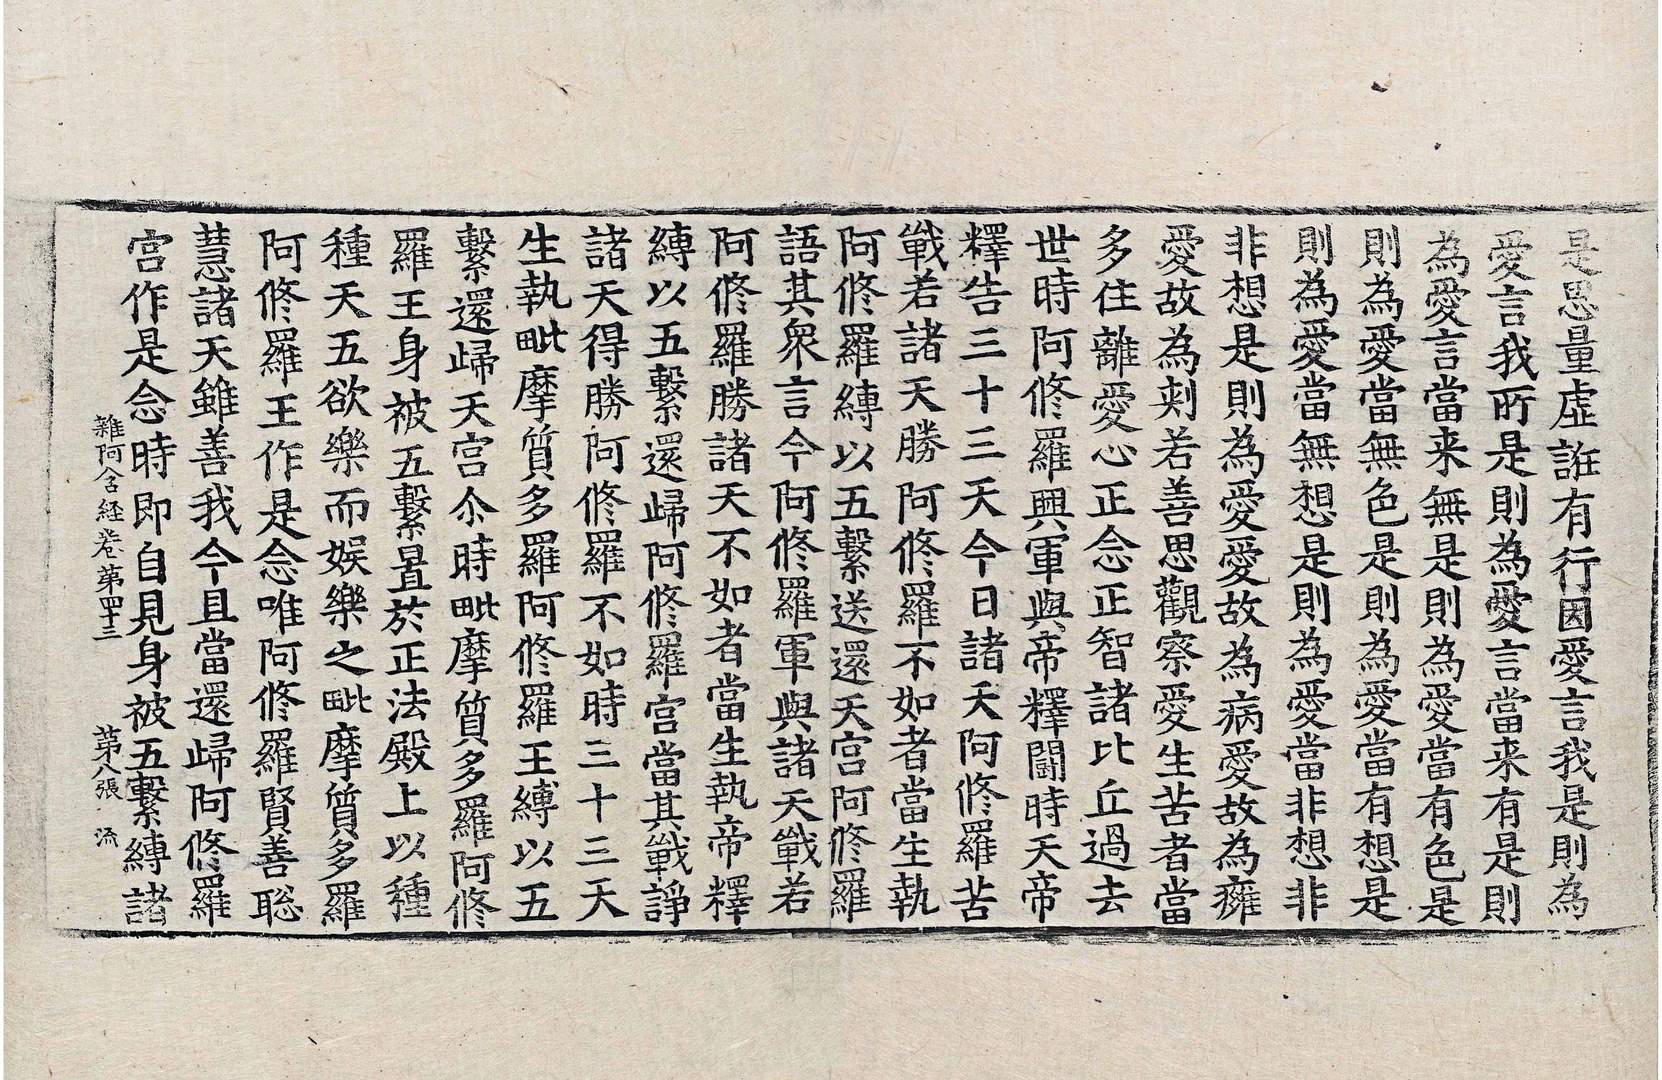 是思量虛誑有行因愛言我是則為
愛言我所是則為愛言當来有是則
為愛言當来無是則為愛當有色是
則為愛當無色是則為愛當有想是
則為愛當無想是則為愛當非想非
非想是則為愛愛故為病愛故為癰
愛故為刺若善思觀察愛生苦者當
多住離愛心正念正智諸比丘過去
世時阿修羅興軍與帝釋鬪時天帝
釋告三十三天今日諸天阿修羅苦
戰若諸天勝阿修羅不如者當生執
阿修羅縛以五繫送還天宮阿修羅
語其衆言今阿修羅軍與諸天戰若
阿修羅勝諸天不如者當生執帝釋
縛以五繫還歸阿修羅宮當其戰諍
諸天得勝阿修羅不如時三十三天
生執毗摩質多羅阿修羅王縛以五
繫還歸天宮尒時毗摩質多羅阿修
羅王身被五繫置於正法殿上以種
種天五欲樂而娛樂之毗摩質多羅
阿修羅王作是念唯阿修羅賢善聡
慧諸天雖善我今且當還歸阿修羅
宮作是念時即自見身被五繫縛諸
雜阿含経卷第四十三 第八張 流